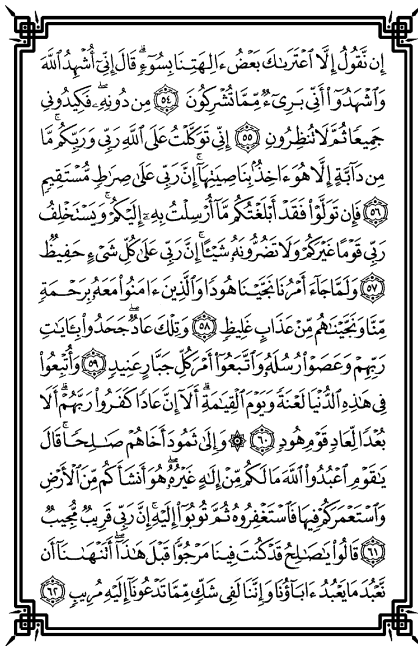 إِن نَّقُولُ إِلَّا ٱعْتَرَىٰكَ بَعْضُ ءَالِهَتِنَا بِسُوٓءٍۗ قَالَ إِنِّىٓ أُشْهِدُ ٱللَّهَ
وَٱشْهَدُوٓاْ أَنِّى بَرِىٓءٌ مِّمَّا تُشْرِكُونَ ٥٤ مِن دُونِهِۦۖ فَكِيدُونِى
جَمِيعًا ثُمَّ لَا تُنظِرُونِ ٥٥ إِنِّى تَوَكَّلْتُ عَلَى ٱللَّهِ رَبِّى وَرَبِّكُمۚ مَّا
مِن دَآبَّةٍ إِلَّا هُوَ ءَاخِذٌۢ بِنَاصِيَتِهَآۚ إِنَّ رَبِّى عَلَىٰ صِرَٰطٍ مُّسْتَقِيمٍ
٥٦ فَإِن تَوَلَّوْاْ فَقَدْ أَبْلَغْتُكُم مَّآ أُرْسِلْتُ بِهِۦٓ إِلَيْكُمْۚ وَيَسْتَخْلِفُ
رَبِّى قَوْمًا غَيْرَكُمْ وَلَا تَضُرُّونَهُۥ شَيْـًٔاۚ إِنَّ رَبِّى عَلَىٰ كُلِّ شَىْءٍ حَفِيظٌ
٥٧ وَلَمَّا جَآءَ أَمْرُنَا نَجَّيْنَا هُودًا وَٱلَّذِينَ ءَامَنُواْ مَعَهُۥ بِرَحْمَةٍ
مِّنَّا وَنَجَّيْنَٰهُم مِّنْ عَذَابٍ غَلِيظٍ ٥٨ وَتِلْكَ عَادٌۖ جَحَدُواْ بِـَٔايَٰتِ
رَبِّهِمْ وَعَصَوْاْ رُسُلَهُۥ وَٱتَّبَعُوٓاْ أَمْرَ كُلِّ جَبَّارٍ عَنِيدٍ ٥٩ وَأُتْبِعُواْ
فِى هَٰذِهِ ٱلدُّنْيَا لَعْنَةً وَيَوْمَ ٱلْقِيَٰمَةِۗ أَلَآ إِنَّ عَادًا كَفَرُواْ رَبَّهُمْۗ أَلَا
بُعْدًا لِّعَادٍ قَوْمِ هُودٍ ٦٠ ۞ وَإِلَىٰ ثَمُودَ أَخَاهُمْ صَٰلِحًاۚ قَالَ
يَٰقَوْمِ ٱعْبُدُواْ ٱللَّهَ مَا لَكُم مِّنْ إِلَٰهٍ غَيْرُهُۥۖ هُوَ أَنشَأَكُم مِّنَ ٱلْأَرْضِ
وَٱسْتَعْمَرَكُمْ فِيهَا فَٱسْتَغْفِرُوهُ ثُمَّ تُوبُوٓاْ إِلَيْهِۚ إِنَّ رَبِّى قَرِيبٌ مُّجِيبٌ
٦١ قَالُواْ يَٰصَٰلِحُ قَدْ كُنتَ فِينَا مَرْجُوًّا قَبْلَ هَٰذَآۖ أَتَنْهَىٰنَآ أَن
نَّعْبُدَ مَا يَعْبُدُ ءَابَآؤُنَا وَإِنَّنَا لَفِى شَكٍّ مِّمَّا تَدْعُونَآ إِلَيْهِ مُرِيبٍ ٦٢